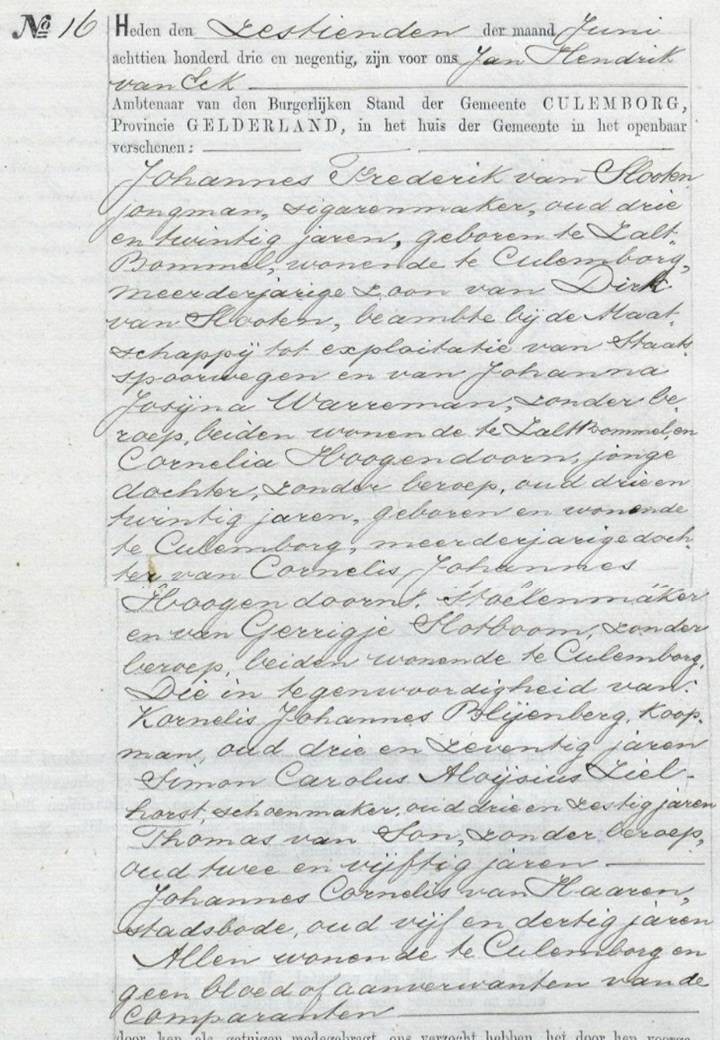 No 16 Heden den zestienden der maand Juni
achttien honderd drie en negentig, zijn voor ons Jan Hendrik
van Eck
Ambtenaar van den Burgerlijken Stand der Gemeente CULEMBORG,
Provincie GELDERLAND, in het huis der Gemeente in het openbaar
verschenen:
Johannes Frederik van Slooten
jongman, sigarenmaker, oud drie
en twintig jaren, geboren te Zalt-
Bommel, wonende te Culemborg,
meerderjarige zoon van Dirk
van Slooten, beambte bij de Maat-
schappij tot exploitatie van Staats
spoorwegen en van Johanna
Josijna Warreman, zonder be-
roep, beiden wonende te Zaltbommel, en
Cornelia Hoogendoorn, jonge
dochter, zonder beroep, oud drie en
twintig jaren, geboren en wonende
te Culemborg, meerderjarige doch-
ter van Cornelis Johannes
Hoogendoorn, stoelenmaker
en van Gerrigje Slotboom, zonder
beroep, beiden wonende te Culemborg.
Die in tegenwoordigheid van:
Kornelis Johannes Blijenberg, koop-
man, oud drie en zeventig jaren
Simon Carolus Aloijsius Ziel-
horst, schoenmaker, oud drie en zestig jaren
Thomas van Son, zonder beroep,
oud twee en vijftig jaren
Johannes Cornelis van Haaren,
stadsbode, oud vijf en dertig jaren
Allen wonende te Culemborg en
geen bloed of aanverwanten van de
Comparanten
door hen als getuigen medegebragt, ons verzocht hebben, het door hen voorge-